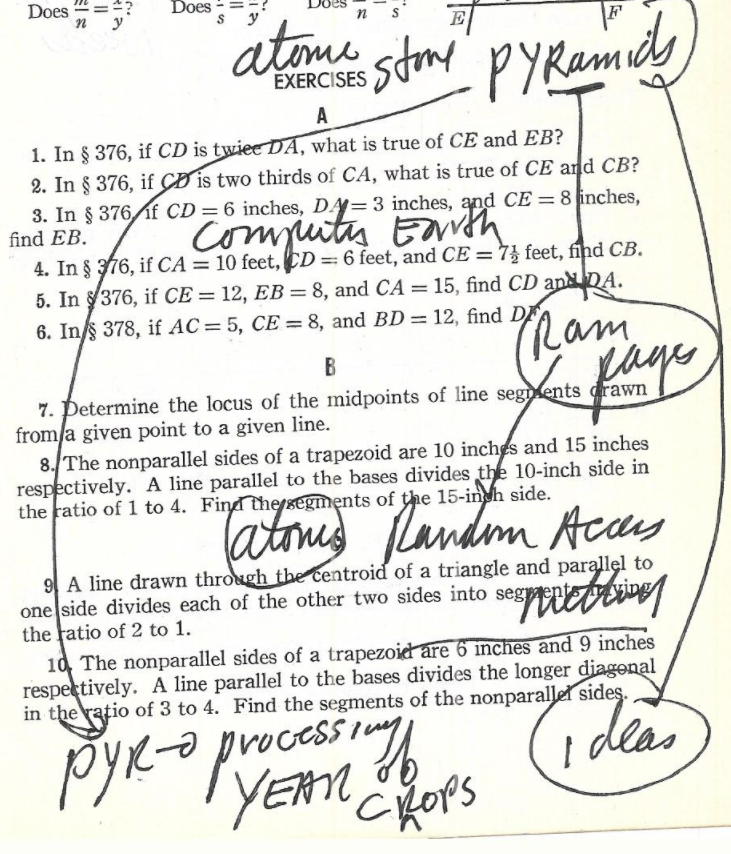 Does m/n = x/y? Does r/s = x/y? Does m/n = r/s?
E F
atomic stone PYRamids
EXERCISES
A
1. In § 376, if CD is twice DA, what is true of CE and EB?
2. In § 376, if CD is two thirds of CA, what is true of CE and CB?
3. In § 376, if CD = 6 inches, DA = 3 inches, and CE = 8 inches,
find EB.
Computer Earth
4. In § 376, if CA = 10 feet, CD = 6 feet, and CE = 7½ feet, find CB.
5. In § 376, if CE = 12, EB = 8, and CA = 15, find CD and DA.
6. In § 378, if AC = 5, CE = 8, and BD = 12, find DF.
Ram
pages
B
7. Determine the locus of the midpoints of line segments drawn
from a given point to a given line.
8. The nonparallel sides of a trapezoid are 10 inches and 15 inches
respectively. A line parallel to the bases divides the 10-inch side in
the ratio of 1 to 4. Find the segments of the 15-inch side.
atomic Random Access
9. A line drawn through the centroid of a triangle and parallel to
one side divides each of the other two sides into segments having
the ratio of 2 to 1.
10. The nonparallel sides of a trapezoid are 6 inches and 9 inches
respectively. A line parallel to the bases divides the longer diagonal
in the ratio of 3 to 4. Find the segments of the nonparallel sides.
ideas
PYR→ processing
YEAR of
CROPS